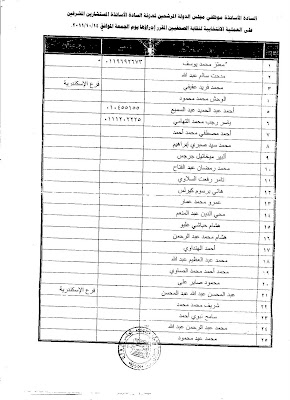 السادة الأساتذة موظفي مجلس الدولة المرشحين لمعاونة السادة الأساتذة المستشارين المشرفين
على العملية الانتخابية لنقابة الصحفيين المقرر إجراؤها يوم الجمعة الموافق
معتز محمد يوسف
مدحت سالم عبد الله
محمد فريد عفيفي فرع الإسكندرية
الوحش محمد محمود
أحمد عبد الحميد عبد السميع
ياسر رجب محمد التهامي
أحمد مصطفي محمد أحمد
محمد سيد صبري إبراهيم
ألبير ميخائيل جرجس
محمد رمضان عبد الفتاح
تامر رفعت السلاوي
هاني برسوم كيرلس
عمرو محمد عمار
محي الدين عبد المنعم
هشام حباشي علي
هشام محمد عبد الرحمن
أحمد الهنداوي
محمد عبد العظيم عبد الله
محمد أحمد محمد الحساوي
محمود صابر علي
عبد المحسن عبد الله عبد المحسن فرع الإسكندرية
شريف محمد محمد
سامح بدوي أحمد
محمد عبد الرحمن عبد الله
محمد عيد محمود